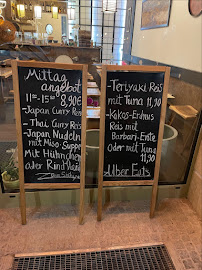 Mittag
angebot
11⁰⁰-15⁰⁰ 8,90€
-Japan Curry Reis
-Thai Curry Reis
-Japan Nudeln
mit Miso-Suppe
Mit Hühnchen
oder Rindfleisch
-Teriyaki Reis
mit Tuna 11,90
-Kokos-Erdnuss
Reis mit
Barbari-Ente
oder mit Tuna
11,90
Uber Eats